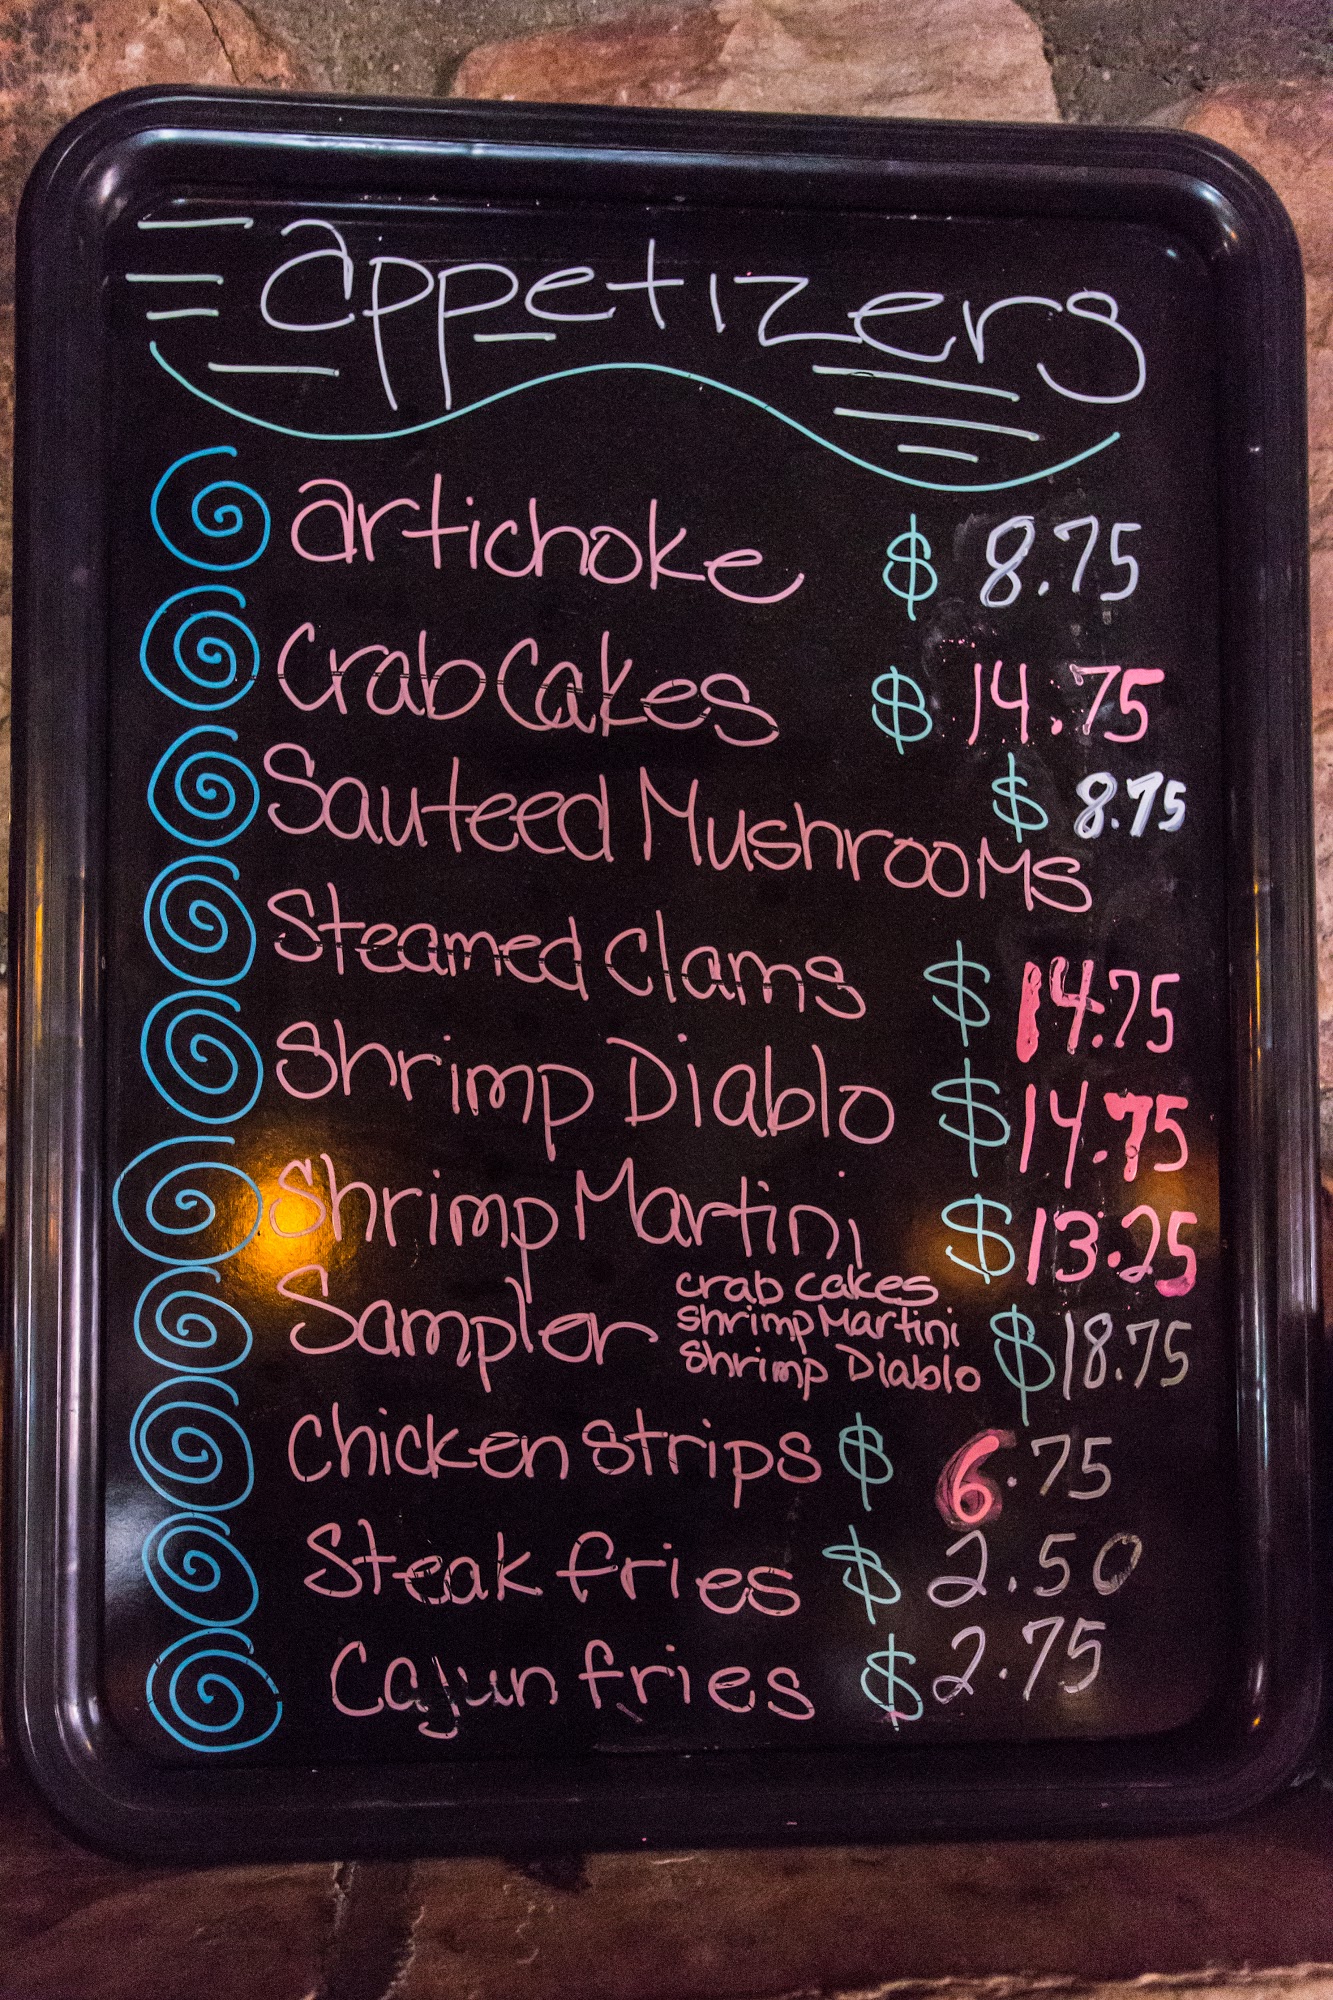 appetizers
artichoke $ 8.75
Crab Cakes $ 14.75
Sauteed Mushrooms $ 8.75
Steamed Clams $ 14.75
Shrimp Diablo $ 14.75
Shrimp Martini $ 13.25
Sampler crab cakes shrimp Martini shrimp Diablo $ 18.75
Chicken strips $ 6.75
Steak fries $ 2.50
Cajun fries $ 2.75